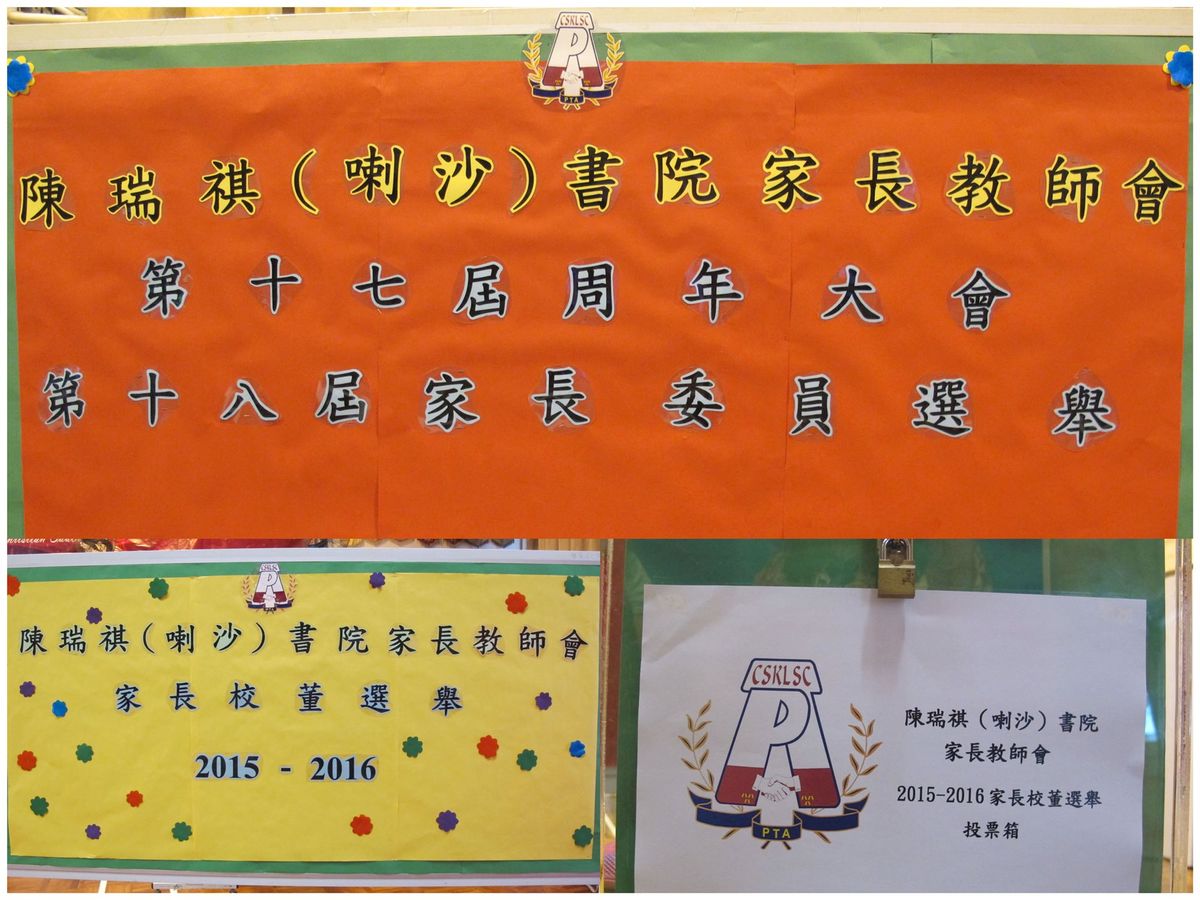 CSKLSC
PTA
陳瑞祺（喇沙）書院家長教師會
第十七屆周年大會
第十八屆家長委員選舉
陳瑞祺（喇沙）書院家長教師會
家長校董選舉
2015 - 2016
CSKLSC
PTA
陳瑞祺（喇沙）書院
家長教師會
2015-2016家長校董選舉
投票箱